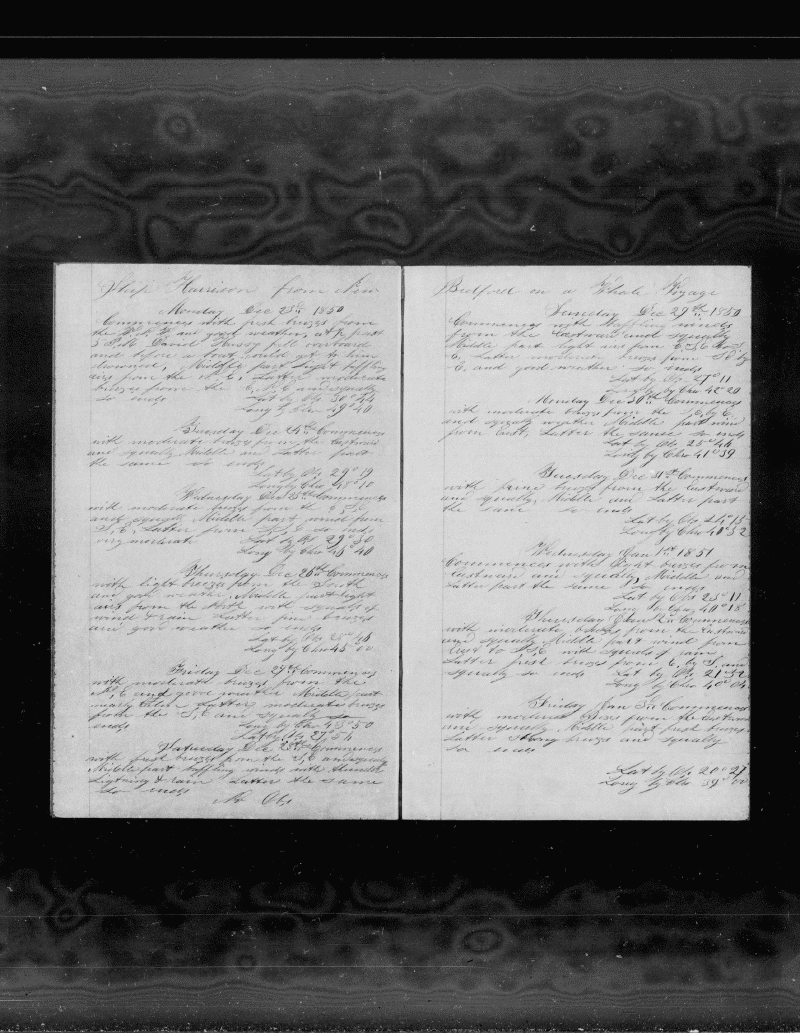 Ship Harrison from New
Monday Dec 23d 1850
Commences with fresh breezes from
the and good weather, at ½ past
5 P.M. David Hussey fell overboard
and before a boat could get to him
drowned, Middle part light baffling
airs from the S, E, Latter moderate
breezes from the E, N, E and squally
so ends Lat by Obs 30° 44
Long by Chro 49° 40
Tuesday Dec 24th Commences
with moderate breezes from the Eastward
and squally Middle and Latter part
the same so ends
Lat by Obs 29° 19
Long by Chro 48° 10
Wednesday Dec 25th Commences
with moderate breezes from the E S E
and squally Middle part wind from
S, E, Latter from so ends
very moderate Lat by Obs 29° 30
Long by Chro 45° 40
Thursday Dec 26th Commences
with light breezes from the South
and good weather, Middle part light
airs from the North with squalls of
wind & rain Latter fine breezes
and good weather so ends
Lat by Obs
Long by Chro 45° 00
Friday Dec 27th Commences
with moderate breezes from the
N, E and good weather Middle part
nearly Calm Latter moderate breezes
from the S, E and squally so
ends Long by Chro 43° 50
Lat by Obs 27° 54
Saturday Dec 28th Commences
with fresh breezes from the S, E and squally
Middle part baffling winds with thunder
Lightning & rain Latter the same
So ends
No Obs
Bedford on a Whale Voyage
Dec 29th 1850
Commences with baffling winds
from the Eastward and squally
Middle part light airs from E, S, E to S,
E, Latter moderate breezes from SE by
E, and good weather so ends
Lat by Obs 27° 11
Long by Chro 42° 20
Monday Dec 30th Commences
with moderate breezes from the S, E, by E,
and squally weather Middle part wind
from East, Latter the same so ends
Lat by Obs 25° 44
Long by Chro 41° 39
Tuesday Dec 31st Commences
with fine breezes from the Eastward
and squally, Middle and Latter part
the same so ends
Lat by Obs 24° 15
Long by Chro 40° 52
Wednesday Jan 1st 1851
Commences with light breezes from
Eastward and squally Middle and
Latter part the same so ends
Lat by Obs 23° 11
Long by Chro 40° 18
Thursday Jan 2d Commences
with moderate breezes from the Eastward
and squally Middle part wind from
East to S, E with squalls of rain
Latter fresh breezes from E, by S, and
squally so ends Lat by Obs 21° 52
Long by Chro 40° 04
Friday Jan 3d Commences
with moderate breezes from the Eastward
and squally Middle part fresh breezes
Latter strong breezes and squally
So ends
Lat by Obs 20° 27
Long by Chro 39° 00